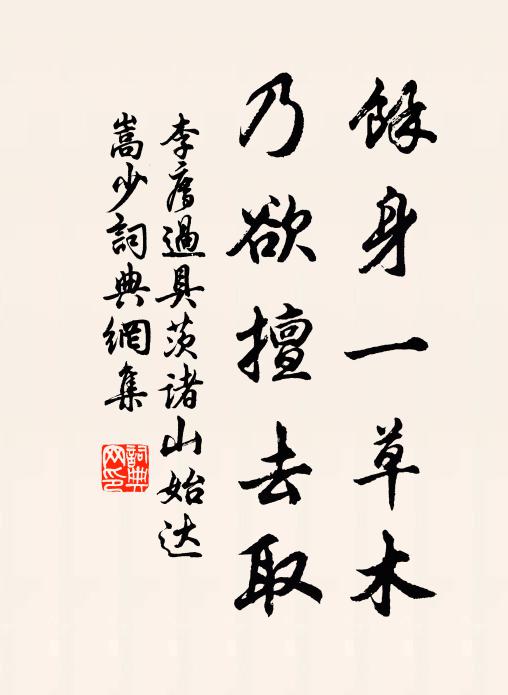 餘身一草木
乃欲擅去取
李廌過具茨諸山始达
嵩少詞典網集
詞典網印